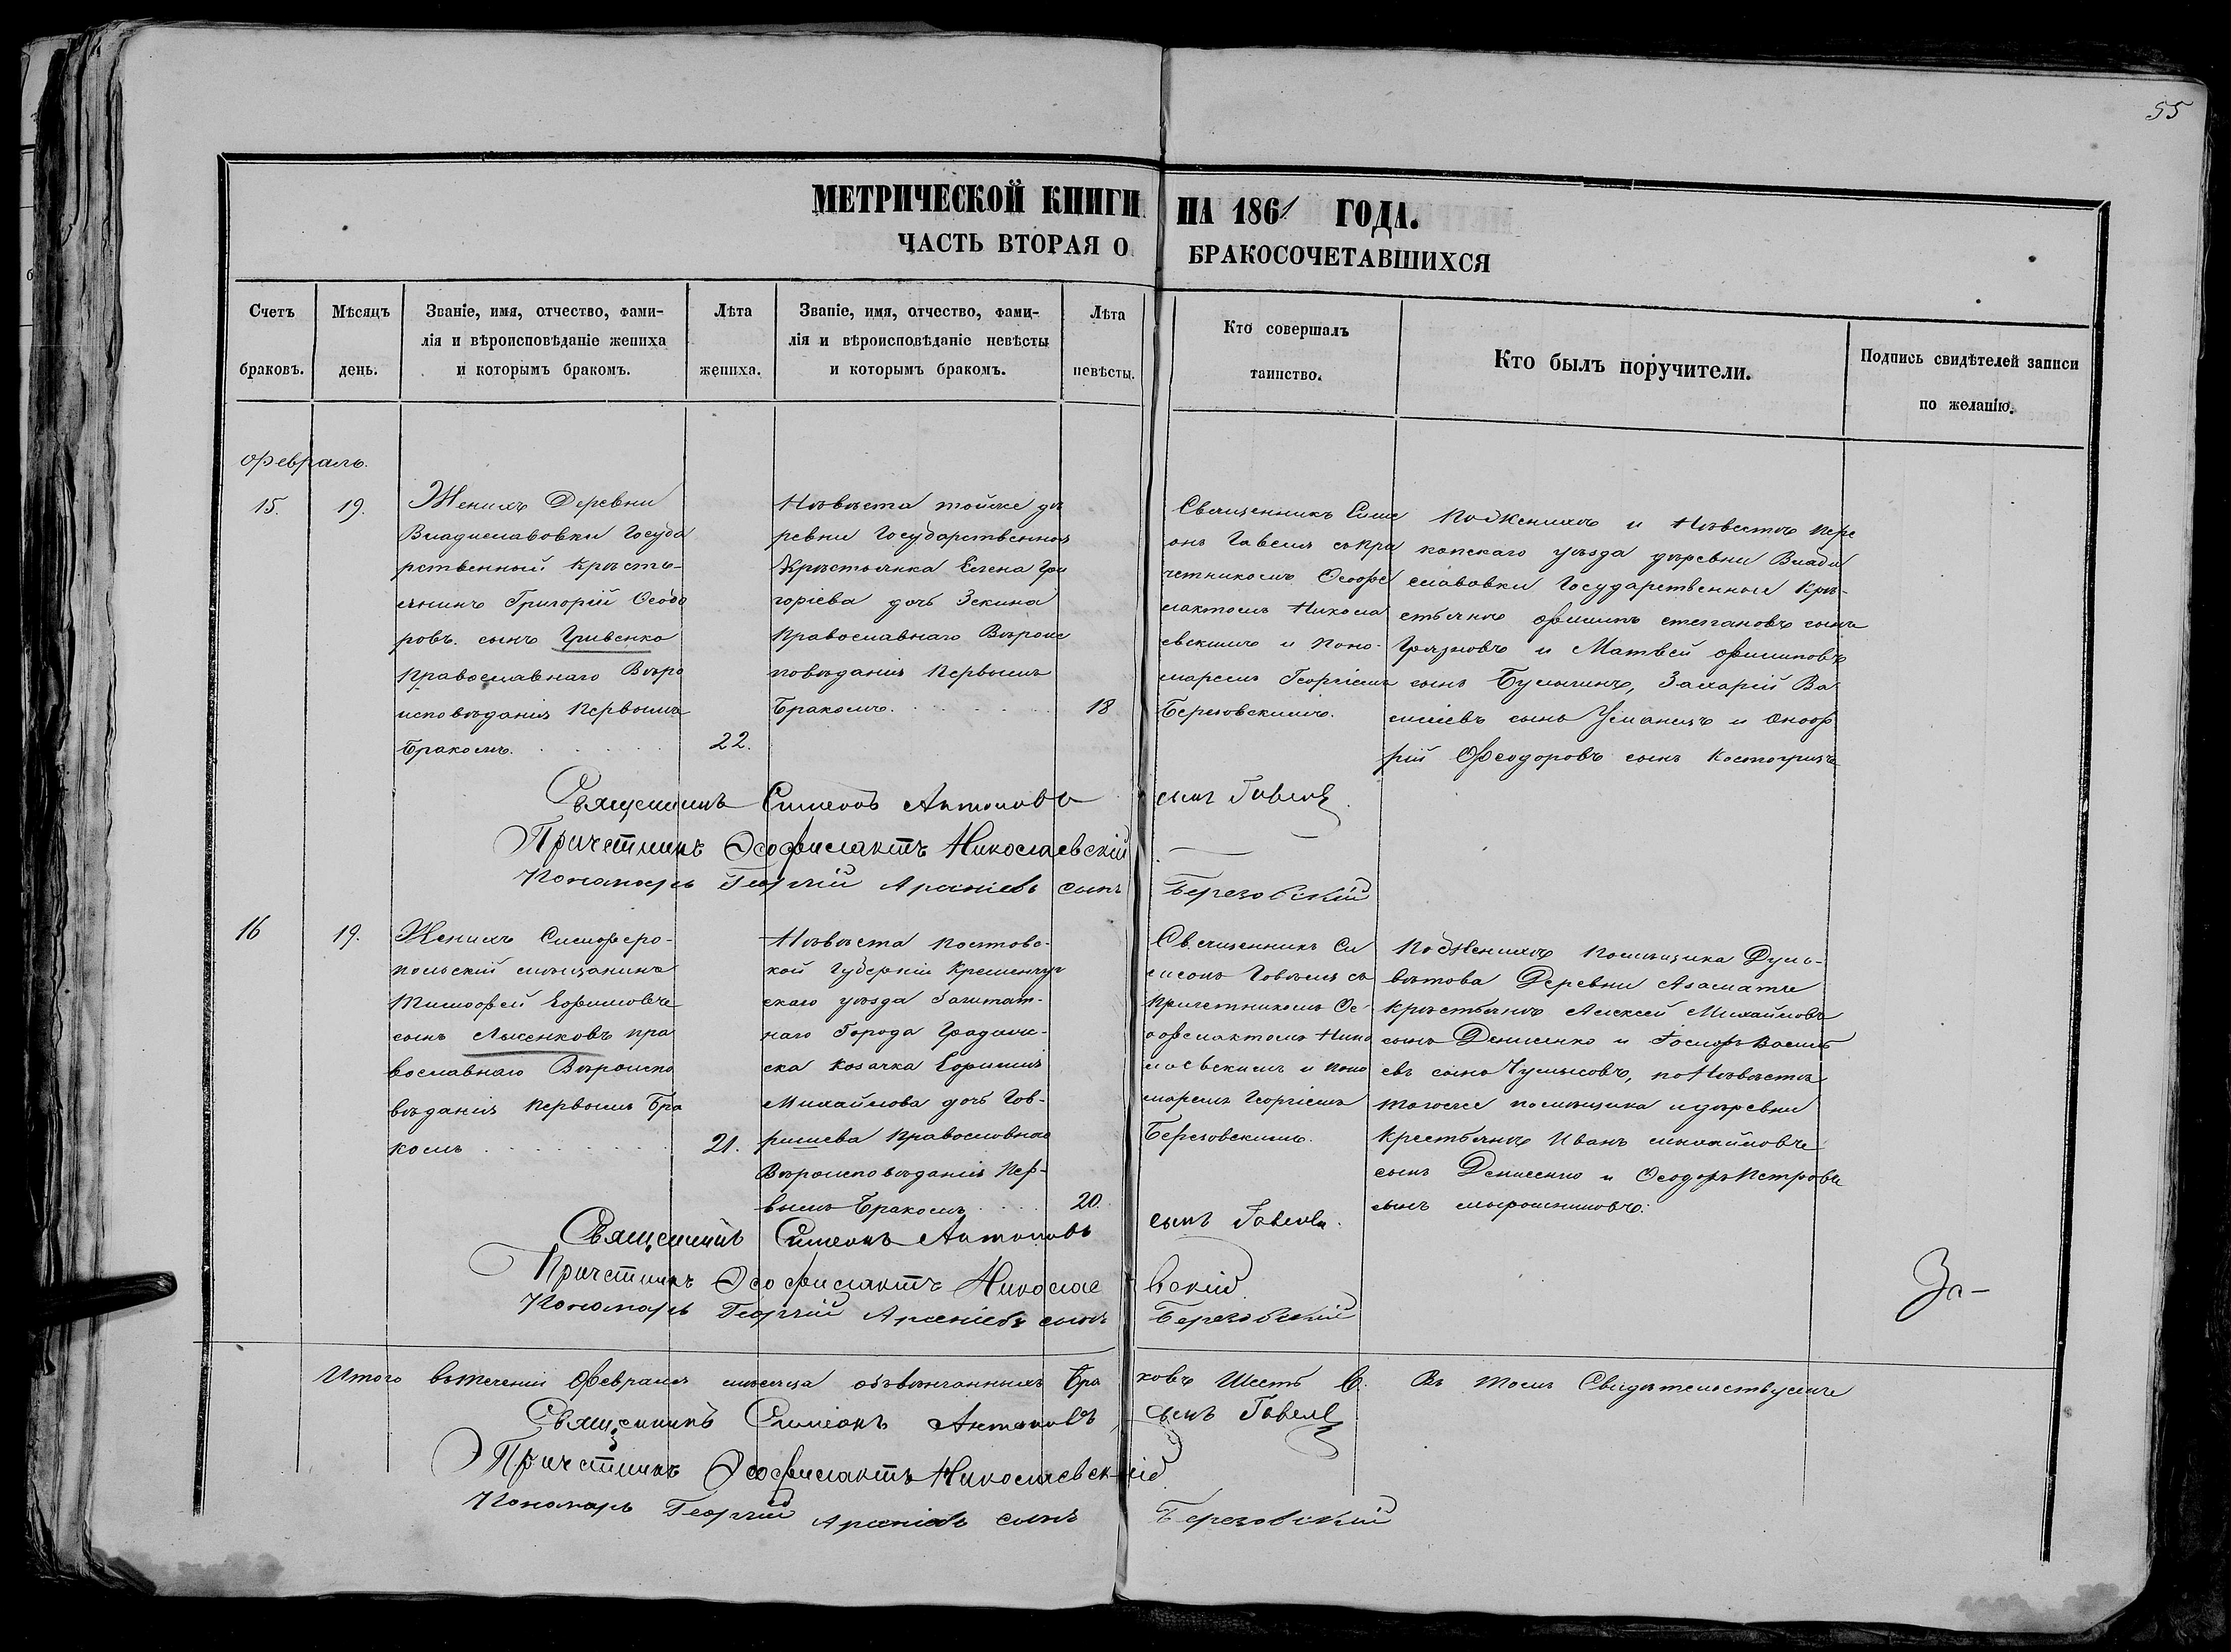 55
МЕТРИЧЕСКОЙ КНИГИ НА 1861 ГОДА.
ЧАСТЬ ВТОРАЯ О БРАКОСОЧЕТАВШИХСЯ
Счетъ браковъ.
Мѣсяцъ день.
Званіе, имя, отчество, фами-
лія и вѣроисповѣданіе жениха
и которымъ бракомъ.
Лѣта жениха.
Званіе, имя, отчество, фами-
лія и вѣроисповѣданіе невѣсты
и которымъ бракомъ.
Лѣта невѣсты.
Кто совершалъ
таинство.
Кто былъ поручители.
Подпись свидѣтелей записи
по желанію.
Февраль.
15.
19.
Женихъ Деревни
Владиславовки Госуда
рственный Крѣсть-
янинъ Григорій Ѳеодо
ровъ сынъ Гривенко
Православнаго Вѣро
исповѣданія Первымъ
Бракомъ.
22.
Нѣвѣста тойже дѣ
ревни Государственная
Крѣстьянка Елена Гри
горіева дочь Зекина
Православнаго Вѣроис
повѣданія Первымъ
Бракомъ.
18
Священникъ Симе
онъ Гавель съ При
четникомъ Ѳеофи
лактомъ Никола
евскимъ и Поно-
маремъ Георгіемъ
Березовскимъ.
По Женихѣ и Нѣвестѣ Пере
копскаго уѣзда дѣревни Влади
славовки Государственныи Крѣ-
стьянѣ Филипъ степановъ сынъ
и Матвей Филиповъ
сынъ Захарій Ва
силіевъ сынъ Усманецъ и Оноф
рій Феодоровъ сынъ Костогризъ
Священникъ Симеонъ Антоновъ сынъ Гавель
Причетникъ Ѳеофилактъ Николаевскій
Пономарь Георгій Арсеніевъ сынъ Березовскій
16
19.
Женихъ Симферо-
польскій мѣщанинъ
Тимофей Ефимовъ
сынъ Лысенковъ пра
вославнаго Вѣроиспо
вѣданія Первымъ Бра
комъ
21.
Нѣвѣста Полтавс-
кой Губерніи Кременчуг
скаго уѣзда Заштат-
наго Города Градиж-
ска Козачка Ефимия
Михайлова дочь Гав-
ришева Православнаго
Вѣроисповѣданія Пер-
вымъ Бракомъ
20.
Священникъ Си
меонъ Гавель съ
Причетникомъ Ѳе-
офилактомъ Нико
лаевскимъ и Поно
маремъ Георгіемъ
Березовскимъ.
По Женихѣ Помѣщика Дуль-
вѣтова Деревни Азаматъ
Крѣстьянѣ Алексей Михайловъ
сынъ Денисенко и Василі
евъ сынъ по Нѣвѣстѣ
тогоже помѣщика и дѣревни
Крестьянѣ Иванъ михайловъ
сынъ Денисенко и Ѳеодоръ Петровъ
сынъ мирошниковъ.
Священникъ Симеонъ Антоновъ сынъ Гавель
Причетникъ Ѳеофилактъ Николаевскій
Пономарь Георгій Арсеніевъ сынъ Березовскій
За-
Итого въ теченіи Февраля мѣсяца обвѣнчанныхъ Браковъ Шесть 6. Въ томъ Свидѣтельствуемъ
Священникъ Симеонъ Антоновъ сынъ Гавель
Причетникъ Ѳеофилактъ Николаевскій
Пономарь Георгій Арсеніевъ сынъ Березовскій